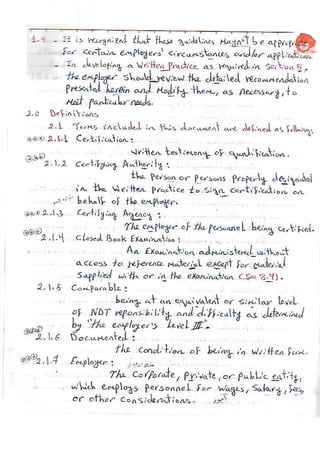 1.4 - It is recognized that these guidelines Mayn't be appropriate
For certain employers' circumstances and/or applications.
- In developing a Written Practice as required in Section 5,
the employer should review the detailed recommendation
presented herein and Modify them, as necessary, to
Meet particular needs.
2.0 Definitions
2.1 Terms included in this document are defined as follows:
2.1.1 Certification:
Written testimony of qualification.
2.1.2 Certifying Authority:
the person or persons properly designated
in the Written practice to sign certification on
behalf of the employer.
2.1.3 Certifying Agency:
The employer of the personnel being certified.
2.1.4 Closed Book Examination:
An Examination administered without
access to reference Material except for Material
supplied with or in the examination (See 8.7).
2.1.5 Comparable:
being at an equivalent or similar level
of NDT reponsibility and difficulty as determined
by "the employer's Level III".
2.1.6 Documented:
the condition of being in Written Form.
2.1.7 Employer:
The Corporate, private, or public entity,
which employs personnel For wages, Salary, Fees,
or other considerations.